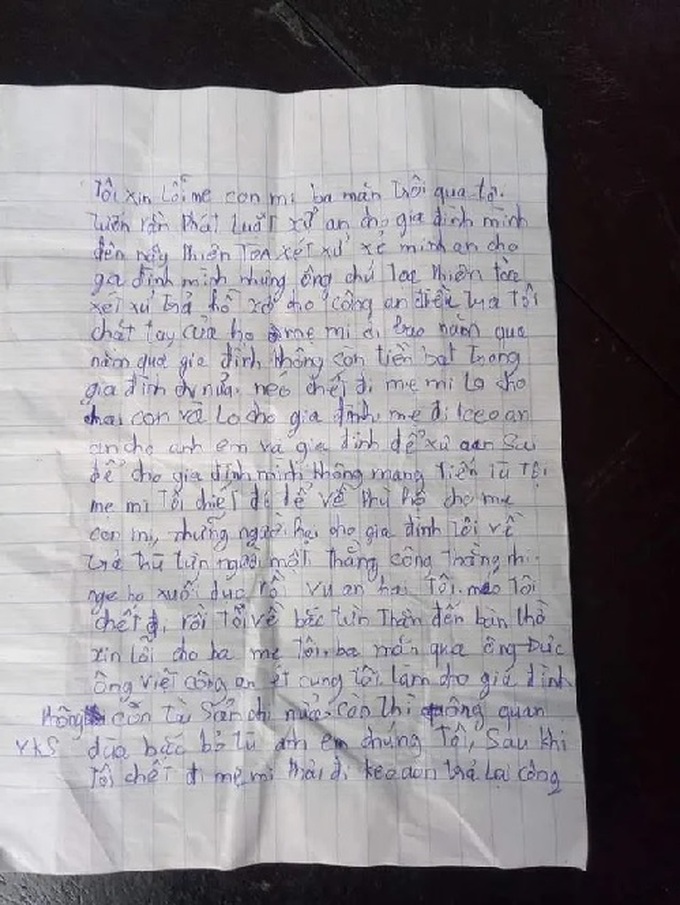 Tôi xin lỗi mẹ con mi ba mán trôi qua tô.
luôn vấn phát luất xử an cho gia đình mình
đến nẫy phiên tòa xét xử xẻ minh an cho
ga đình mình nhưng ông chủ tọc phiên tòa
xét xử trả hồ xơ cho công an điều tra tội
chất tay của họ mẹ mi đi bao năm qua
năm qua gia đình không còn tiền bạt trong
gia đình nữa. nếo chết đi mẹ mi lo cho
hai con và lo cho gia đình. mẹ đi keo an
an cho anh em và gia đình để xủ oan sai
để cho gia đình mình không mang tiến tù tội
mẹ mi tôi chiết đó để về phù hộ cho mẹ
con mi, những người hại cho gia đình tôi về
trả thù từn người một thằng công thằng nhi
nge họ xuối dục rồi vu an hại tôi. mếo tôi
chết đi, rồi tôi về bắc từn thằn đến bàn thờ
xin lỗi cho ba mẹ tôi. ba mán qua ông Đức
ông việt công an ét cung tôi. làm cho gia đình
không còn tài sản chi nữa. còn thì ông quan
VKS dùa bắc bỏ tù anh em chúng tôi, sau khi
tôi chết đi mẹ mi phải đi keo oan trả lại công